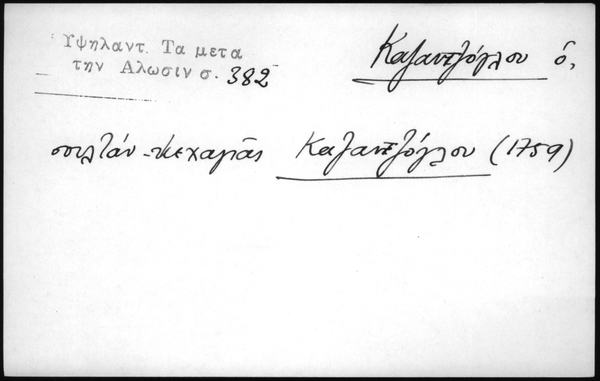 Ὑψηλαντ. Τα μετα
την Αλωσιν σ. 382
Καζαντζόγλου ὁ,
σπιλτάν-κεχαγιᾶς Καζαντζόγλου (1759)